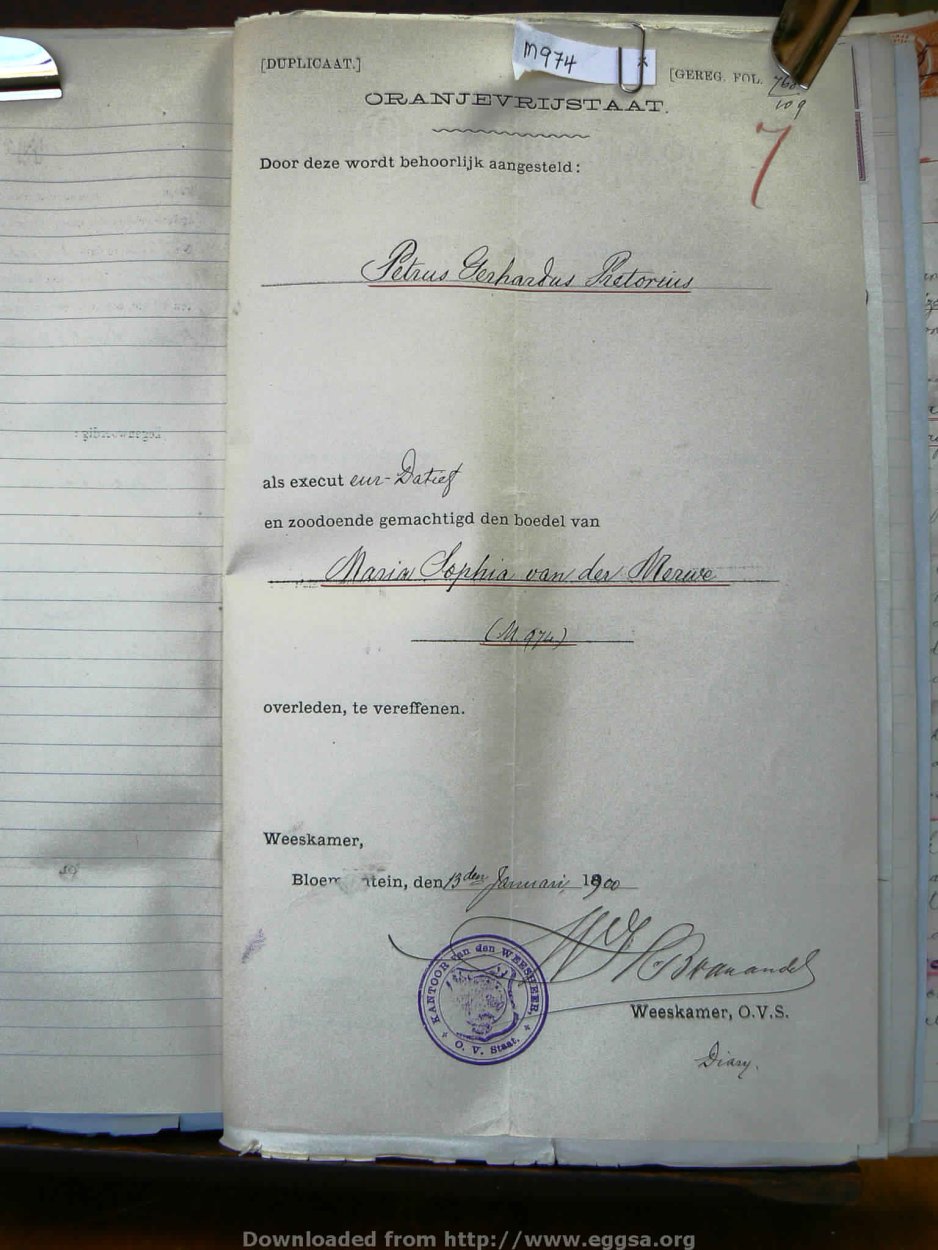 M974
[DUPLICAAT.]
[GEREG. FOL.
109
ORANJEVRIJSTAAT.
7
Door deze wordt behoorlijk aangesteld:
Petrus Gerhardus Pretorius
als execut eur-Datief
en zoodoende gemachtigd den boedel van
Maria Sophia van der Merwe
(M. 974)
overleden, te vereffenen.
Weeskamer,
Bloem ntein, den 13den Januari, 1900
KANTOOR van den WEESHEER,
O. V. Staat.
Weeskamer, O.V.S.
Diary.
Downloaded from http://www.eggsa.org